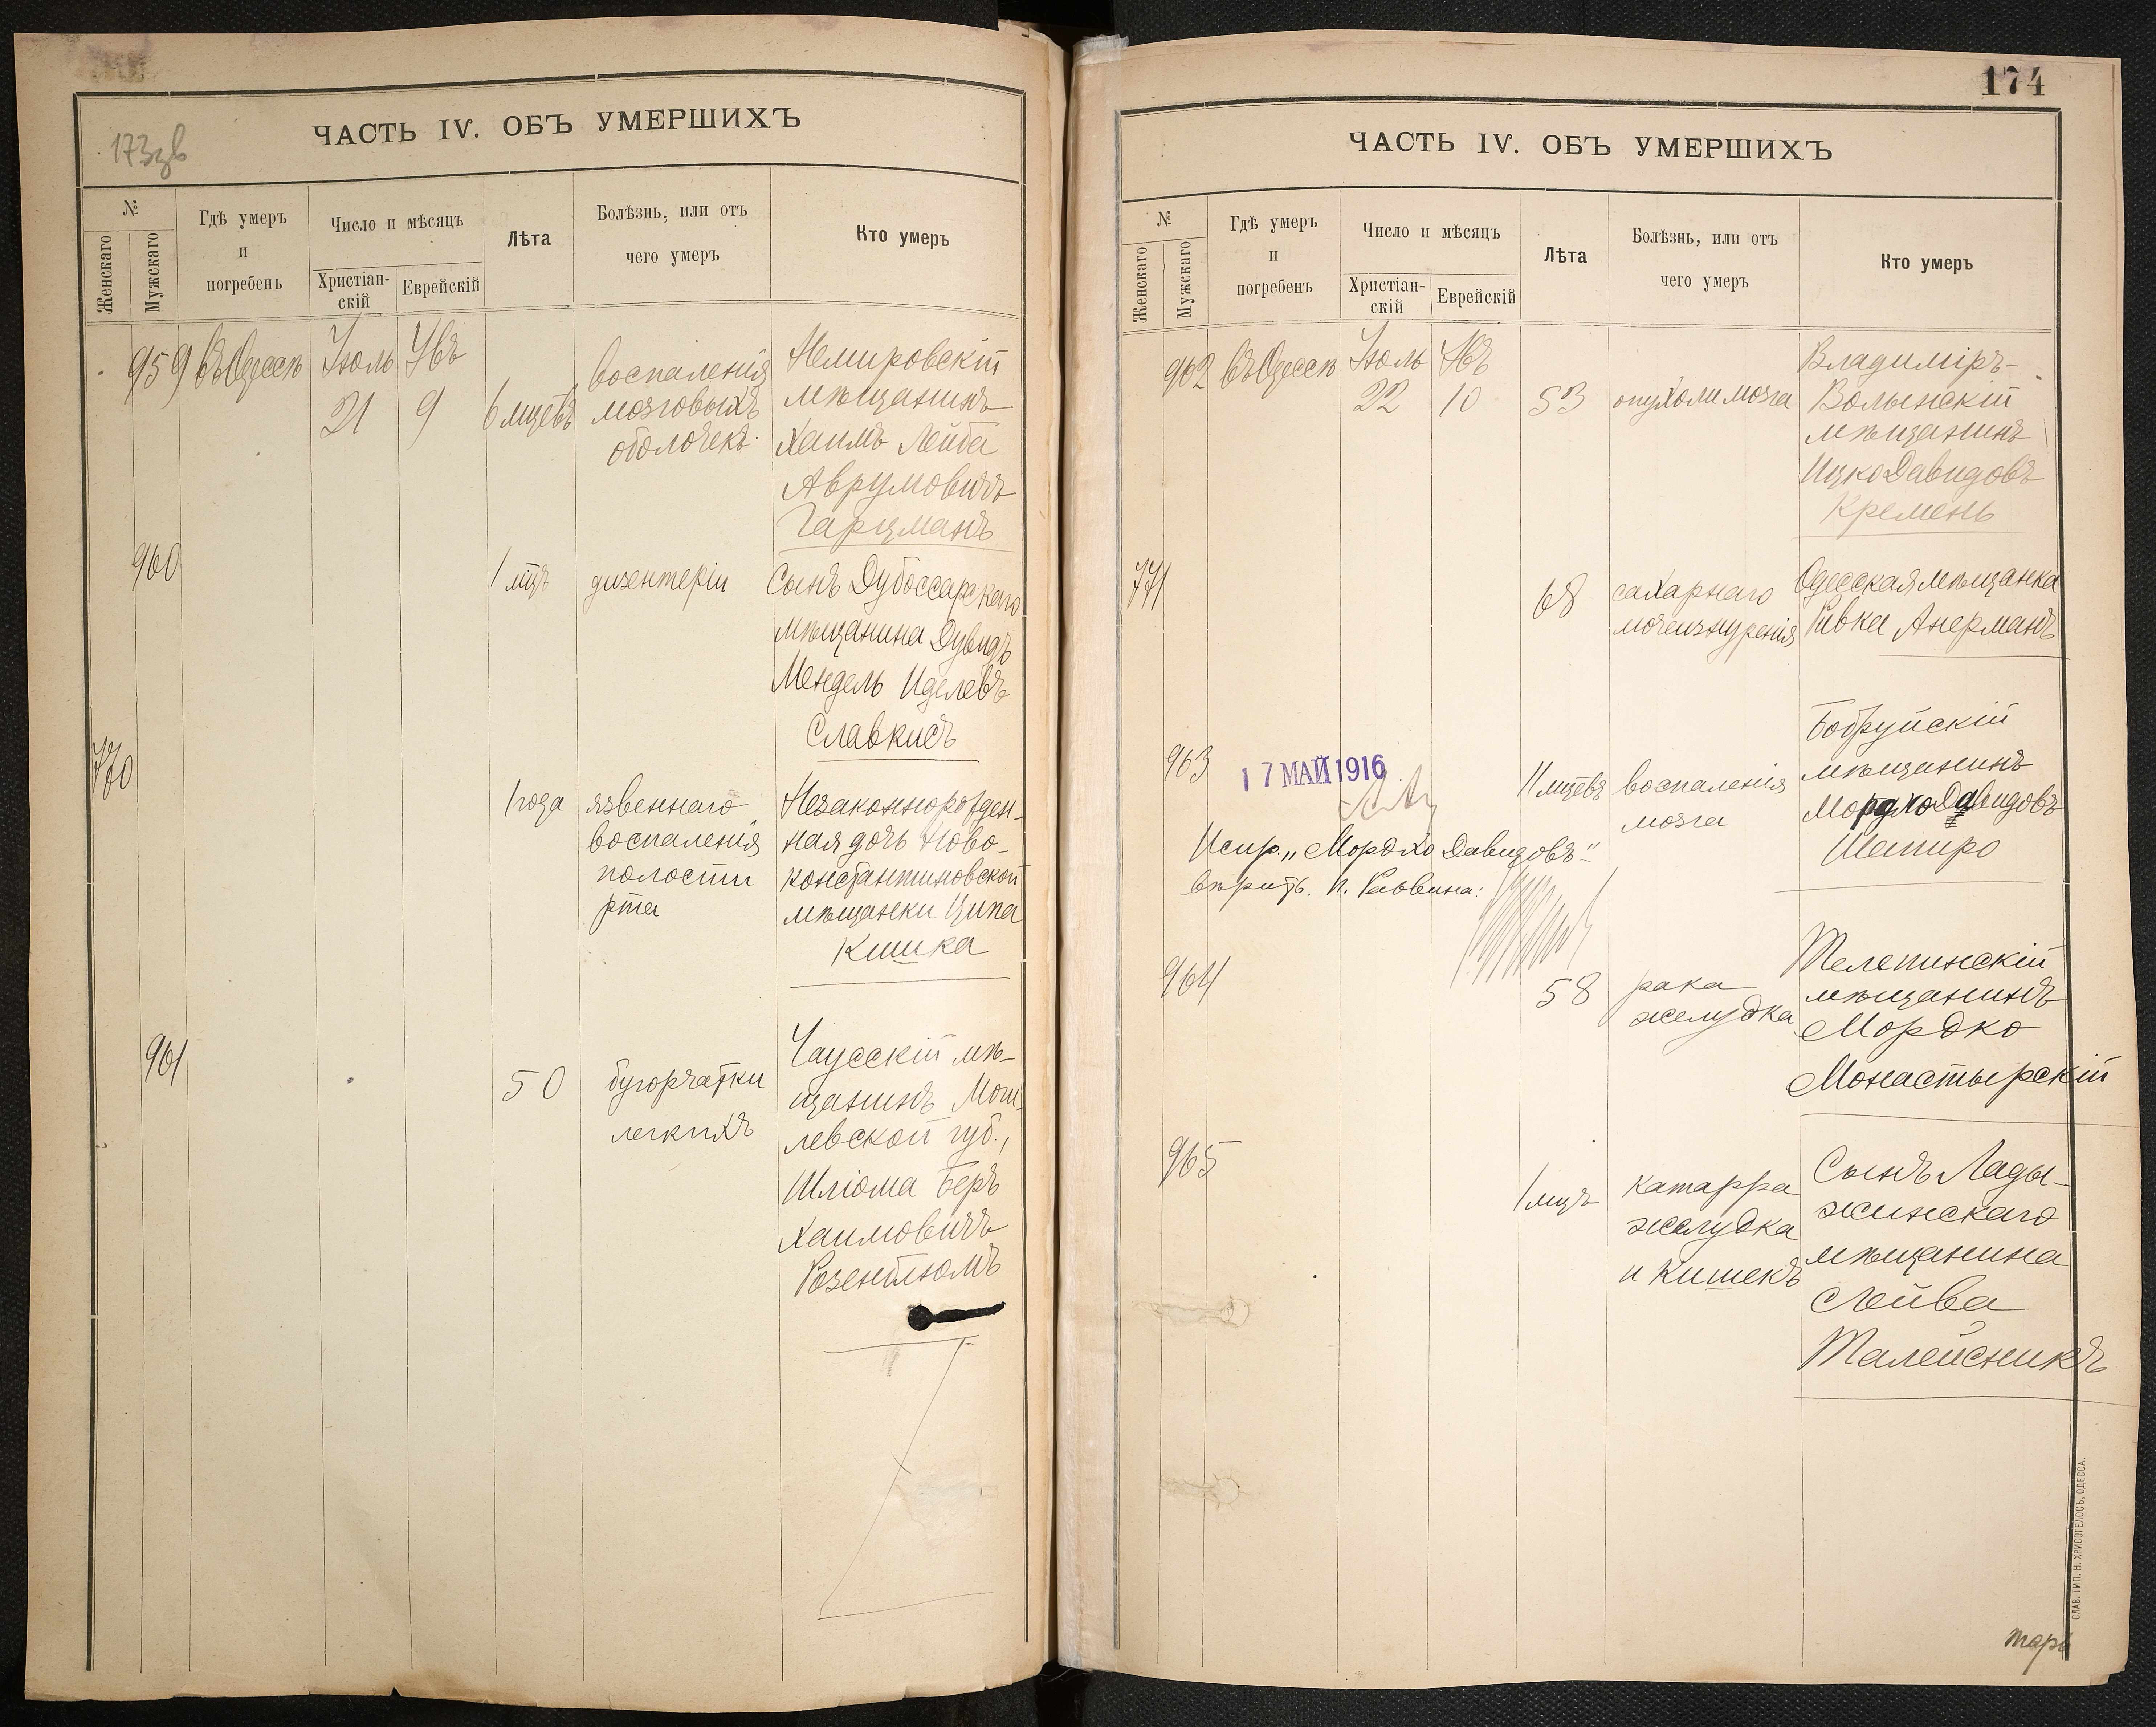 173зв
ЧАСТЬ IV. ОБЪ УМЕРШИХЪ
№
Женскаго
Мужскаго
Гдѣ умеръ
и
погребенъ
Число и мѣсяцъ
Христіан-
скій
Еврейскій
Лѣта
Болѣзнь, или отъ
чего умеръ
Кто умеръ
959 въ Одессѣ Іюль Увъ
21 9 6 мцевъ
воспаленія
мозговыхъ
оболочекъ
Немировскій
мѣщанинъ
Хаимъ Лейба
Аврумовичъ
Гарцманъ
960 1 мцъ дизентеріи
Сынъ Дубоссарскаго
мѣщанина Дувидъ
Мендель Иделевъ
Славкисъ
770 1 года
язвеннаго
воспаленія
полости
рта
Незаконнорожден-
ная дочь Ново-
константиновской
мѣщанки Ципа
Кишка
961 50
бугорчатки
легкихъ
Чаусскій мѣ-
щанинъ Моги-
левской губ.,
Шліома Беръ
Хаимовичъ
Розенблюмъ
174
ЧАСТЬ IV. ОБЪ УМЕРШИХЪ
№
Женскаго
Мужскаго
Гдѣ умеръ
и
погребенъ
Число и мѣсяцъ
Христіан-
скій
Еврейскій
Лѣта
Болѣзнь, или отъ
чего умеръ
Кто умеръ
962 въ Одессѣ Іюль Увъ
22 10 53 опухоли мозга
Владиміръ-
Волынскій
мѣщанинъ
Ицко Давидовъ
Кремень
771 68
сахарнаго
мочеизнуренія
Одесская мѣщанка
Ривка Анерманъ
963 17 МАЙ 1916
11 мцевъ
воспаленія
мозга
Бобруйскій
мѣщанинъ
Мордхо Давидовъ
Шапиро
Испр. „Мордхо Давидовъ"
вѣрить. И. Раввина:
964 58
рака
желудка
Телепинскій
мѣщанинъ
Мордко
Монастырскій
965 1 мцъ
катарра
желудка
и кишекъ
Сынъ Лады-
жинскаго
мѣщанина
Лейва
Талейсникъ
СЛАВ. ТИП. Н. ХРИСОГЕЛОСЪ, ОДЕССА.